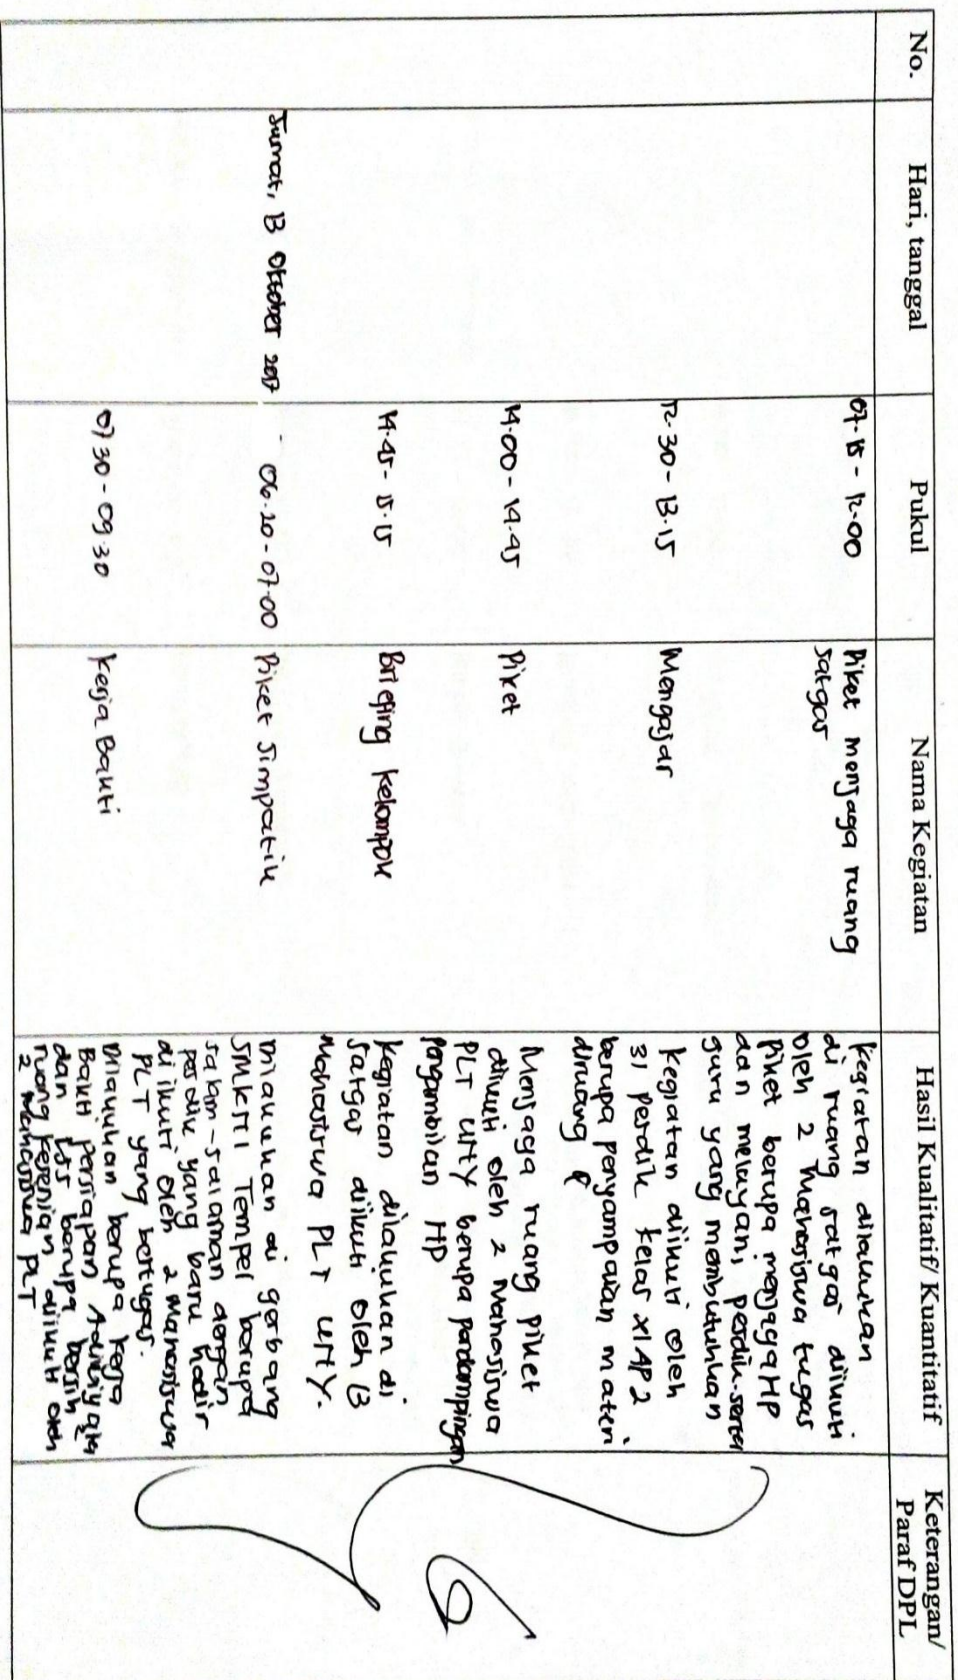 No.
Hari, tanggal
Pukul
Nama Kegiatan
Hasil Kualitatif/ Kuantitatif
Keterangan/
Paraf DPL
07.15 - 12.00
Piket menjaga ruang
satgas
Kegiatan dilakukan
di ruang satgas diikuti
oleh 2 Mahasiswa tugas
Piket berupa menjaga HP
dan melayani perdik serta
guru yang membutuhkan
12.30 - 13.15
Mengajar
Kegiatan diikuti oleh
31 perdik kelas XI AP2
berupa penyampaian materi
diruang 8
14.00 - 14.45
Piket
Menjaga ruang piket
diikuti oleh 2 Mahasiswa
PLT UNY berupa pendampingan
pengambilan HP
14.45 - 15.15
Briefing kelompok
Kegiatan dilakukan di
Satgas diikuti oleh 13
Mahasiswa PLT UNY.
Jumat, 13 Oktober 2017
06.20 - 07.00
Piket Simpatik
Dilakukan di gerbang
SMKN 1 Tempel berupa
salam-salaman dengan
perdik yang baru hadir
di ikuti oleh 2 Mahasiswa
PLT yang bertugas.
07.30 - 09.30
Kerja Bakti
Dilakukan berupa kerja
Bakti persiapan Adiwiyata
dan LSS berupa bersih2
ruang kesenian diikuti oleh
2 Mahasiswa PLT